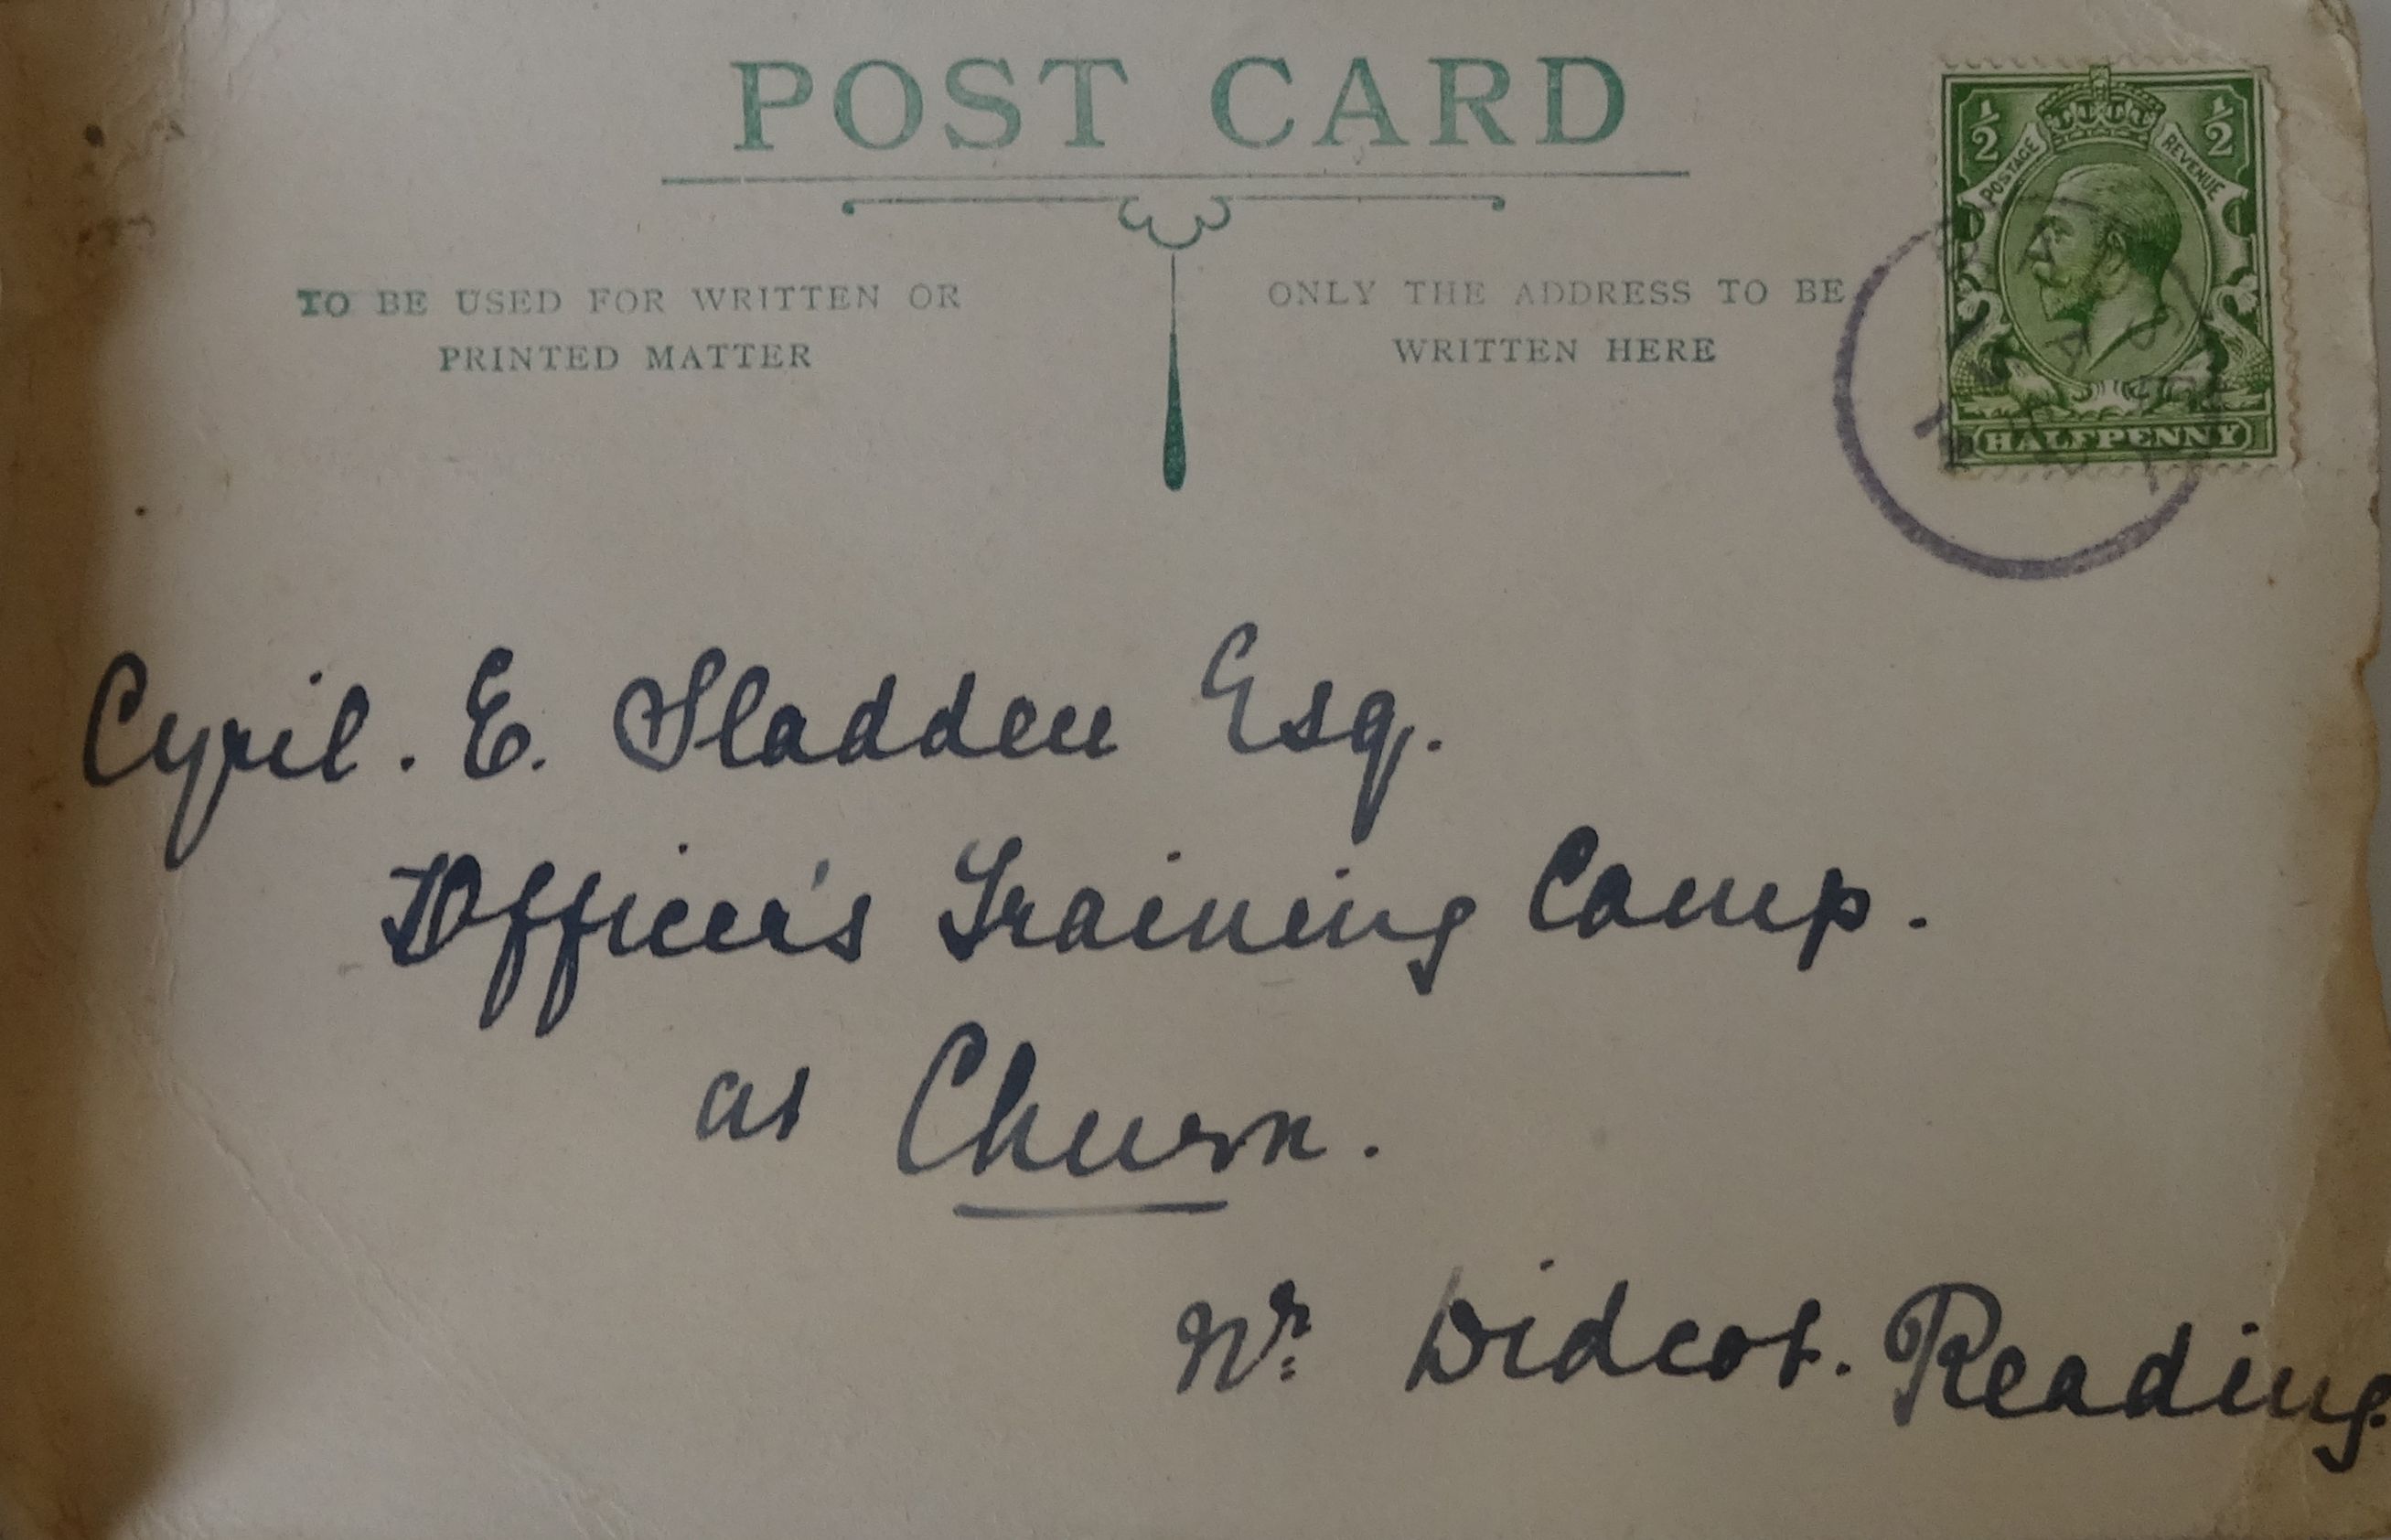 POST CARD
TO BE USED FOR WRITTEN OR
PRINTED MATTER
ONLY THE ADDRESS TO BE
WRITTEN HERE
½ ½
POSTAGE REVENUE
HALFPENNY
Cyril. E. Sladden Esq.
Officer's Training Camp.
at Churn.
Nr Didcot. Reading.